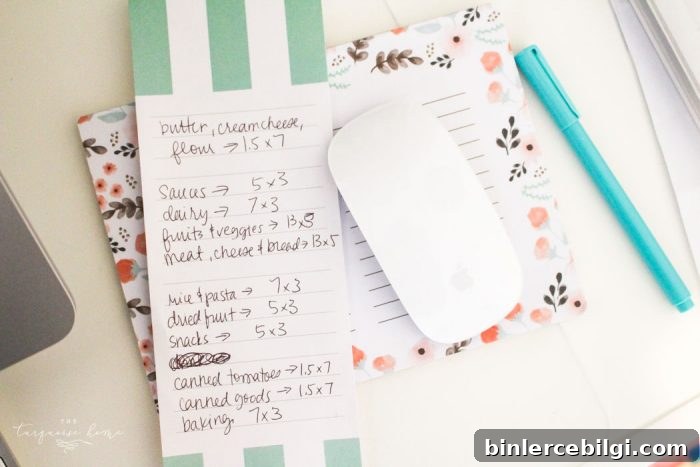 butter, cream cheese,
flour → 1.5 x 7
sauces → 5 x 3
dairy → 7 x 3
fruits & veggies → 13 x 5
meat, cheese & bread → 13 x 5
rice & pasta → 7 x 3
dried fruit → 5 x 3
snacks → 5 x 3
canned tomatoes → 1.5 x 7
canned goods → 1.5 x 7
baking, 7 x 3
THE
turquoise home
binlercebilgi.com